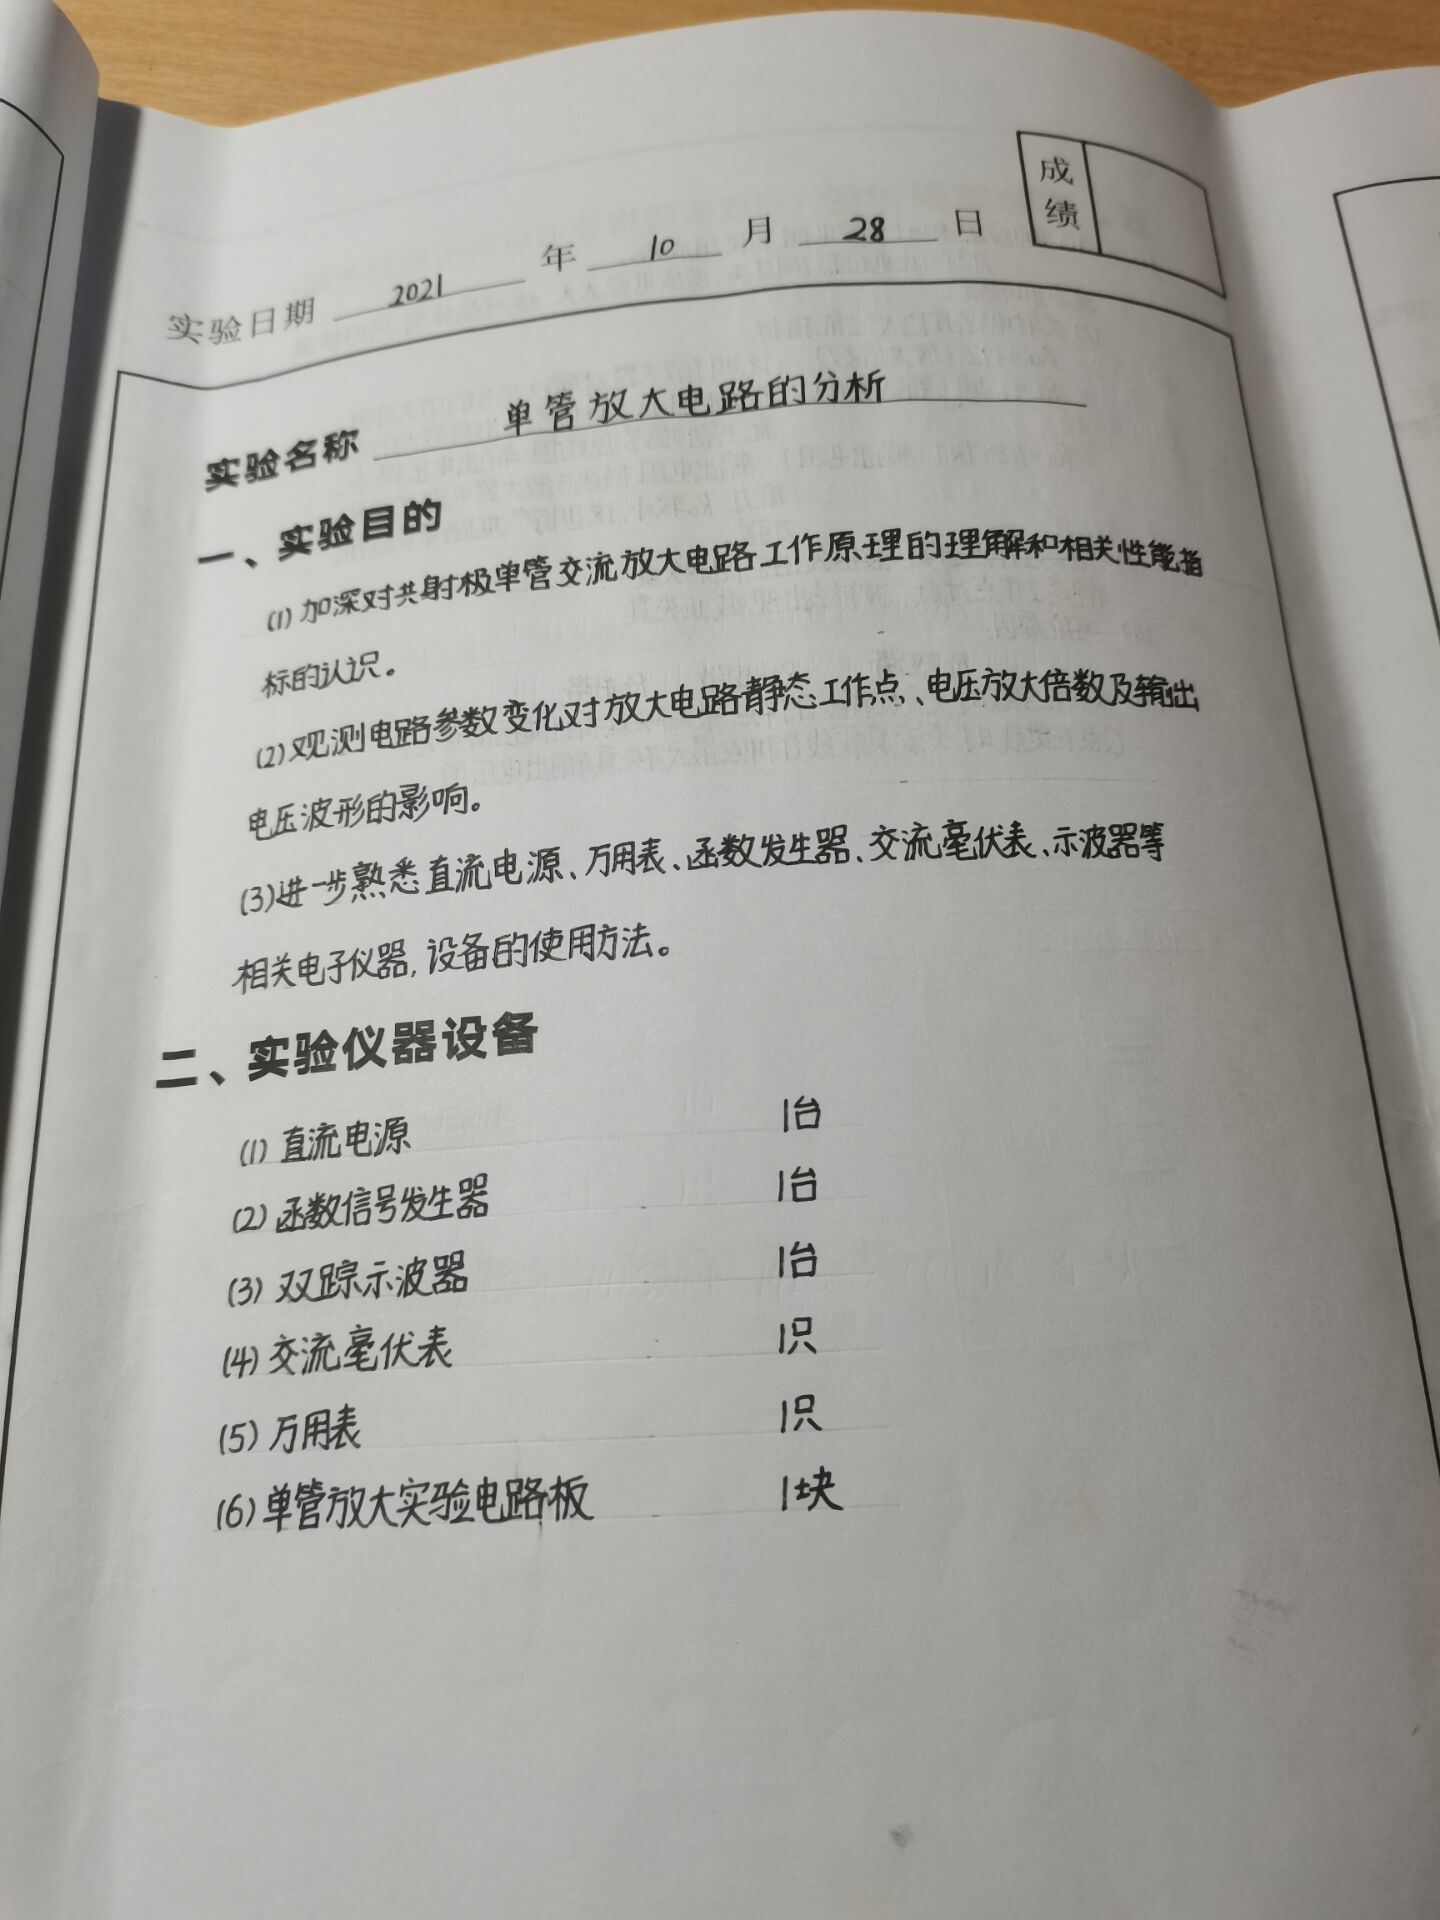 成绩
实验日期 2021 年 10 月 28 日
实验名称 单管放大电路的分析
一、实验目的
(1) 加深对共射极单管交流放大电路工作原理的理解和相关性能指
标的认识。
(2) 观测电路参数变化对放大电路静态工作点、电压放大倍数及输出
电压波形的影响。
(3)进一步熟悉直流电源、万用表、函数发生器、交流毫伏表、示波器等
相关电子仪器,设备的使用方法。
二、实验仪器设备
(1) 直流电源 1台
(2) 函数信号发生器 1台
(3) 双踪示波器 1台
(4) 交流毫伏表 1只
(5) 万用表 1只
(6) 单管放大实验电路板 1块